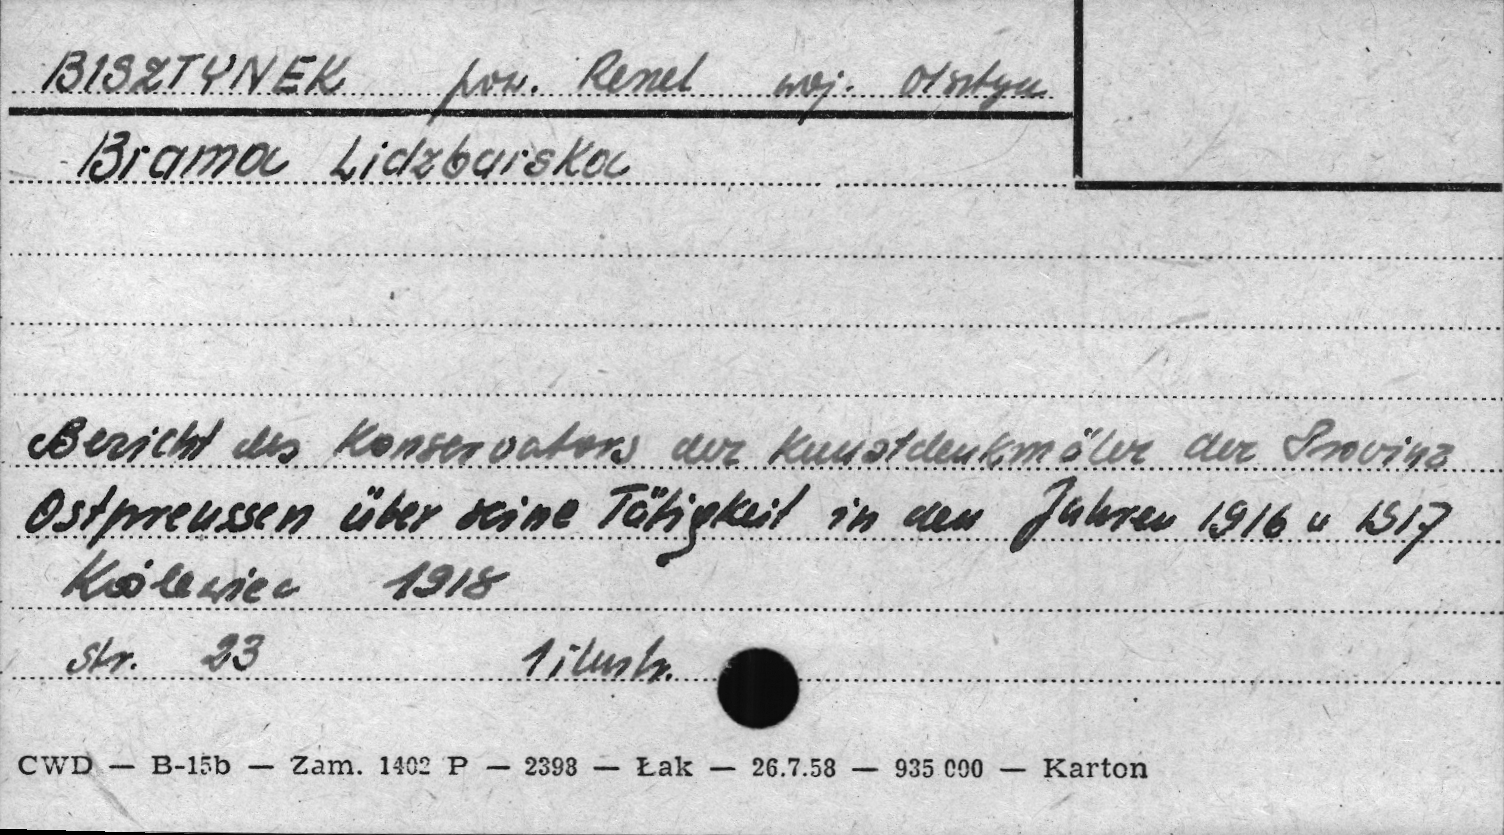 BISZTYNEK pow. Reszel woj. Olsztyn
Brama Lidzbarska
Bericht des Konservators der Kunstdenkmäler der Provinz
Ostpreussen über seine Tätigkeit in den Jahren 1916 u 1917
Królewiec 1918
str. 23 1 ilustr.
CWD — B-15b — Zam. 1402 P — 2398 — Łak — 26.7.58 — 935 000 — Karton